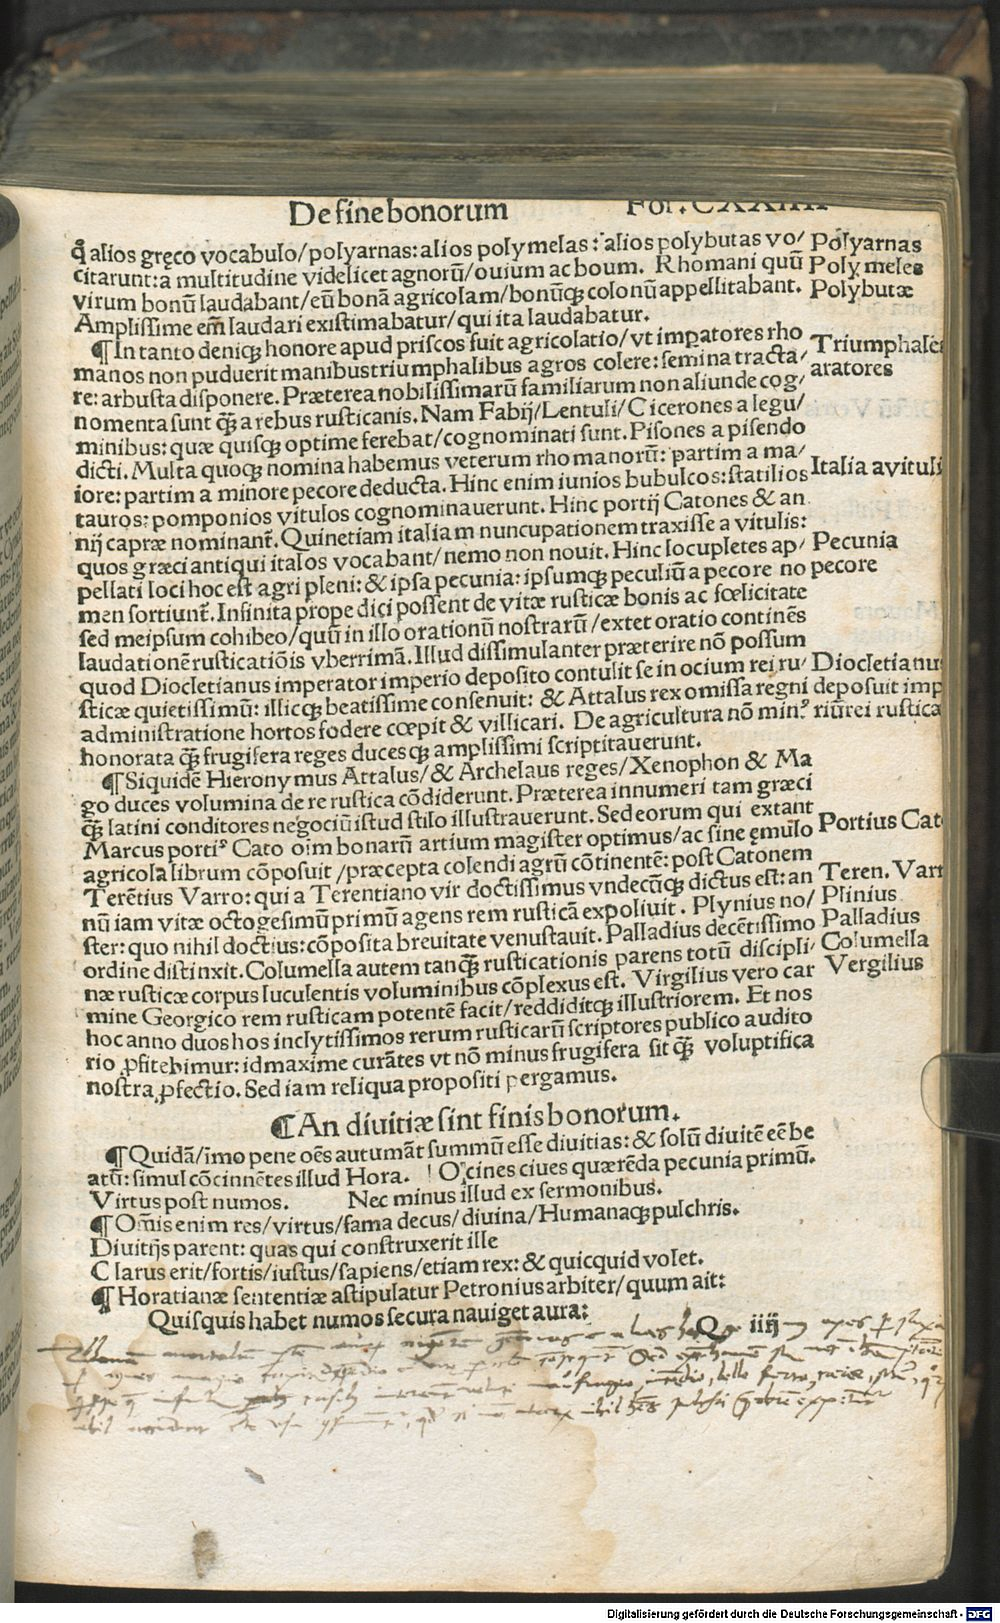 De fine bonorum For. CXXIIII
qͦ alios gręco vocabulo/polyarnas: alios polymelas: alios polybutas vo/ Polyarnas
citarunt: a multitudine videlicet agnorū/ouium ac boum. Rhomani quū Polymeles
virum bonū laudabant/eū bonā agricolam/bonūqꝫ colonū appellitabant. Polybutæ
Amplissime em̄ laudari existimabatur/qui ita laudabatur.
¶In tanto deniqꝫ honore apud priscos fuit agricolatio/vt impatores rho
manos non puduerit manibus triumphalibus agros colere: semina tracta/ Triumphales
re: arbusta disponere. Præterea nobilissimarū familiarum non aliunde cog/ aratores
nomenta sunt qꝫ̄ a rebus rusticanis. Nam Fabij/Lentuli/Cicerones a legu/
minibus: quæ quisqꝫ optime ferebat/cognominati sunt. Pisones a pisendo
dicti. Multa quoqꝫ nomina habemus veterum rhomanorū: partim a ma/
iore: partim a minore pecore deducta. Hinc enim iunios bubulcos: statilios Italia a vituli
tauros: pomponios vitulos cognominauerunt. Hinc portij Catones & an
nij capræ nominant̄. Quinetiam italiam nuncupationem traxisse a vitulis:
quos græci antiqui italos vocabant/nemo non nouit. Hinc locupletes ap/ Pecunia
pellati loci hoc est agri pleni: & ipsa pecunia: ipsumqꝫ peculiū a pecore no pecore
men sortiunt̄. Infinita prope dici possent de vitæ rusticæ bonis ac fœlicitate
sed meipsum cohibeo/quū in illo orationū nostrarū/extet oratio continēs
laudationē rusticatiōis vberrimā. Illud dissimulanter præterire nō possum
quod Diocletianus imperator imperio deposito contulit se in ocium rei ru/ Diocletianu
sticæ quietissimū: illicqꝫ beatissime consenuit: & Attalus rex omissa regni deposuit imp
administratione hortos fodere cœpit & villicari. De agricultura nō minꝰ riū rei rustica
honorata qꝫ̄ frugifera reges ducesqꝫ amplissimi scriptitauerunt.
¶Siquidē Hieronymus Attalus/& Archelaus reges/Xenophon & Ma
go duces volumina de re rustica cōdiderunt. Præterea innumeri tam græci
qꝫ̄ latini conditores negociū istud stilo illustrauerunt. Sed eorum qui extant
Marcus portiꝰ Cato oīm bonarū artium magister optimus/ac sine ęmulo Portius Cato
agricola librum cōposuit/præcepta colendi agrū cōtinentē: post Catonem
Terētius Varro: qui a Terentiano vir doctissimus vndecūqꝫ dictus est: an Teren. Varr
nū iam vitæ octogesimū primū agens rem rusticā expoliuit. Plynius no/ Plinius
ster: quo nihil doctius: cōposita breuitate venustauit. Palladius decētissimo Palladius
ordine distinxit. Columella autem tanqꝫ̄ rusticationis parens totū discipli/ Columella
næ rusticæ corpus luculentis voluminibus cōplexus est. Virgilius vero car Vergilius
mine Georgico rem rusticam potentē facit/reddiditqꝫ illustriorem. Et nos
hoc anno duos hos inclytissimos rerum rusticarū scriptores publico audito
rio ꝓfitebimur: id maxime curātes vt nō minus frugifera sit qꝫ̄ voluptifica
nostra ꝓfectio. Sed iam reliqua propositi pergamus.
¶An diuitiæ sint finis bonorum.
¶Quidā/imo pene oēs autumāt summū esse diuitias: & solū diuitē eē be
atū: simul cōcinnētes illud Hora. ! O ciues ciues quærēda pecunia primū.
Virtus post numos. Nec minus illud ex sermonibus.
¶Om̄is enim res/virtus/fama decus/diuina/Humanaqꝫ pulchris.
Diuitijs parent: quas qui construxerit ille
Clarus erit/fortis/iustus/sapiens/etiam rex: & quicquid volet.
¶Horatianæ sententiæ astipulatur Petronius arbiter/quum ait:
Quisquis habet numos secura nauiget aura:
Q iiij
Digitalisierung gefördert durch die Deutsche Forschungsgemeinschaft - DFG